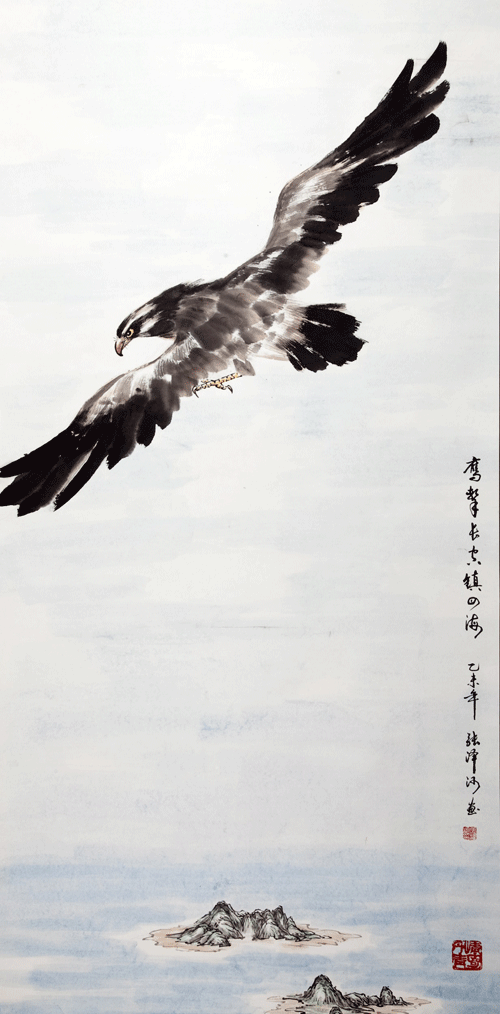 鹰击长空镇四海
乙未年
张泽沙画